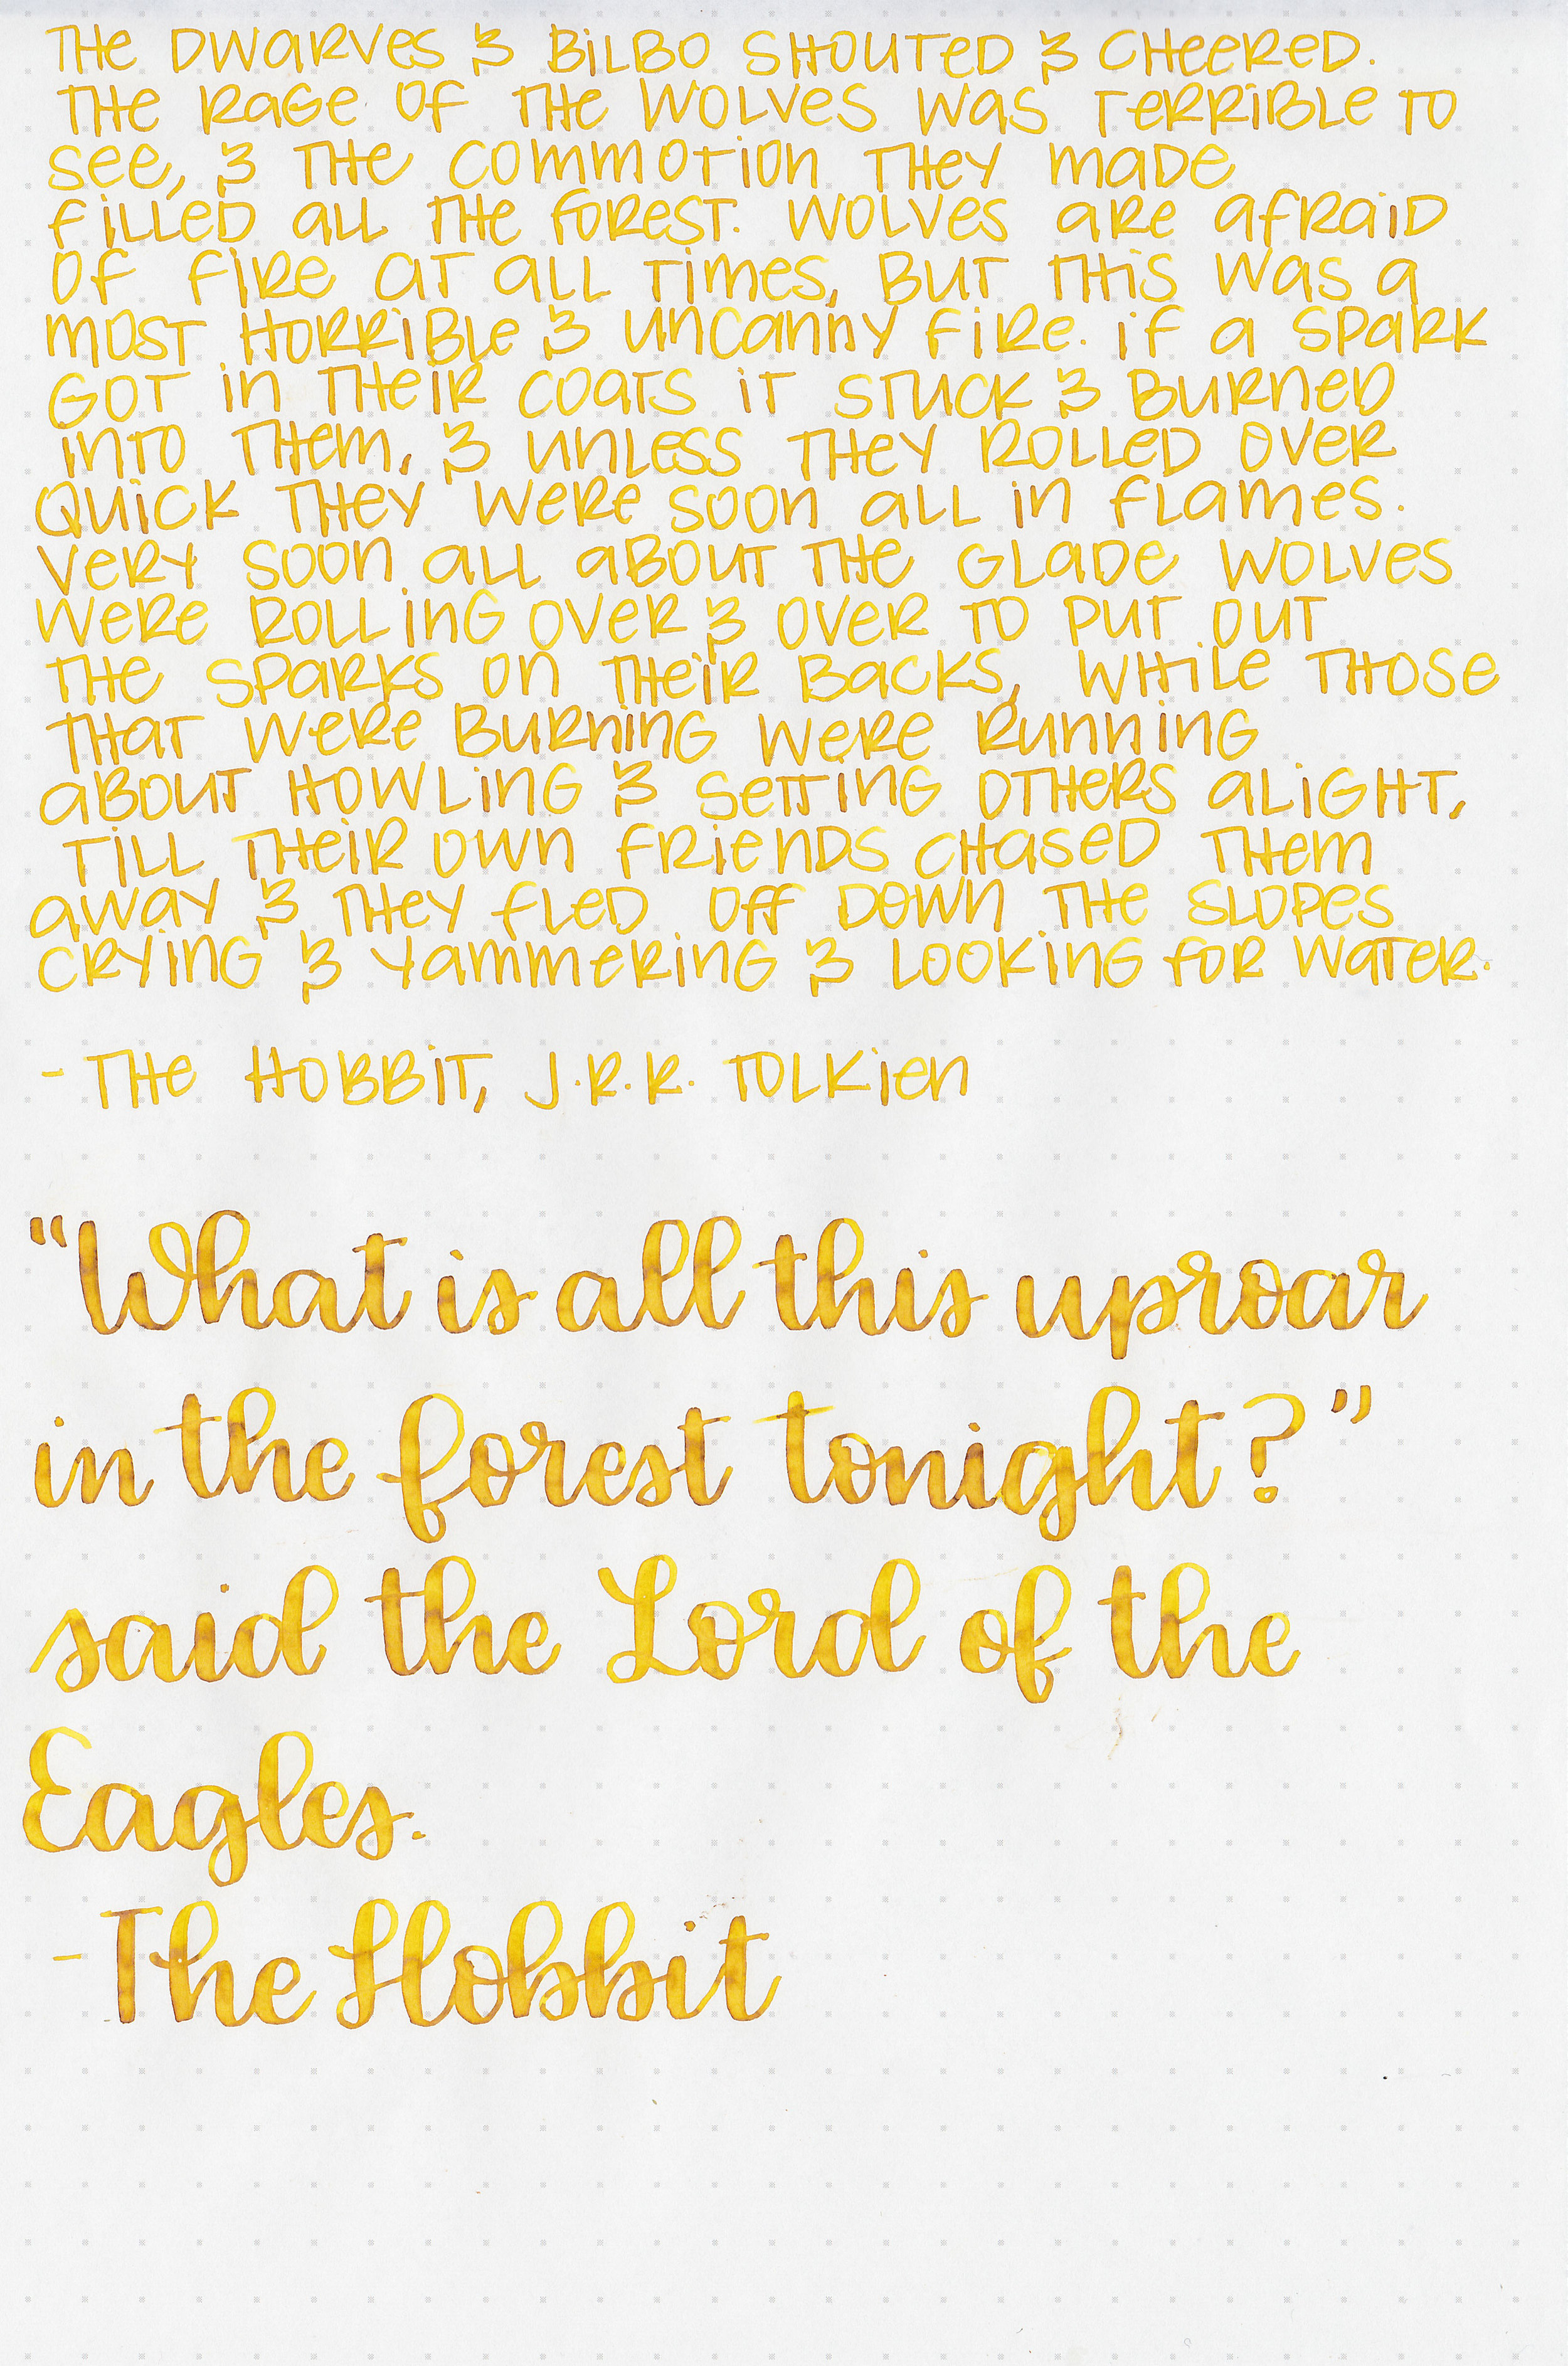 The Dwarves & Bilbo shouted & cheered.
The rage of the wolves was terrible to
see, & the commotion they made
filled all the forest. Wolves are afraid
of fire at all times, but this was a
most horrible & uncanny fire. If a spark
got in their coats it stuck & burned
into them, & unless they rolled over
quick they were soon all in flames.
Very soon all about the glade wolves
were rolling over & over to put out
the sparks on their backs, while those
that were burning were running
about howling & setting others alight,
till their own friends chased them
away & they fled off down the slopes
crying & yammering & looking for water.
- The Hobbit, J.R.R. Tolkien
“What is all this uproar
in the forest tonight?”
said the Lord of the
Eagles.
-The Hobbit